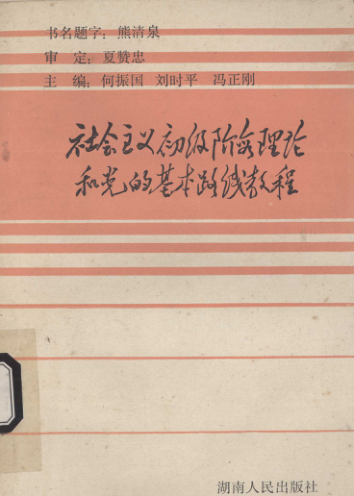 书名题字：熊清泉
审 定：夏赞忠
主 编：何振国 刘时平 冯正刚
社会主义初级阶段理论
和党的基本路线教程
湖南人民出版社